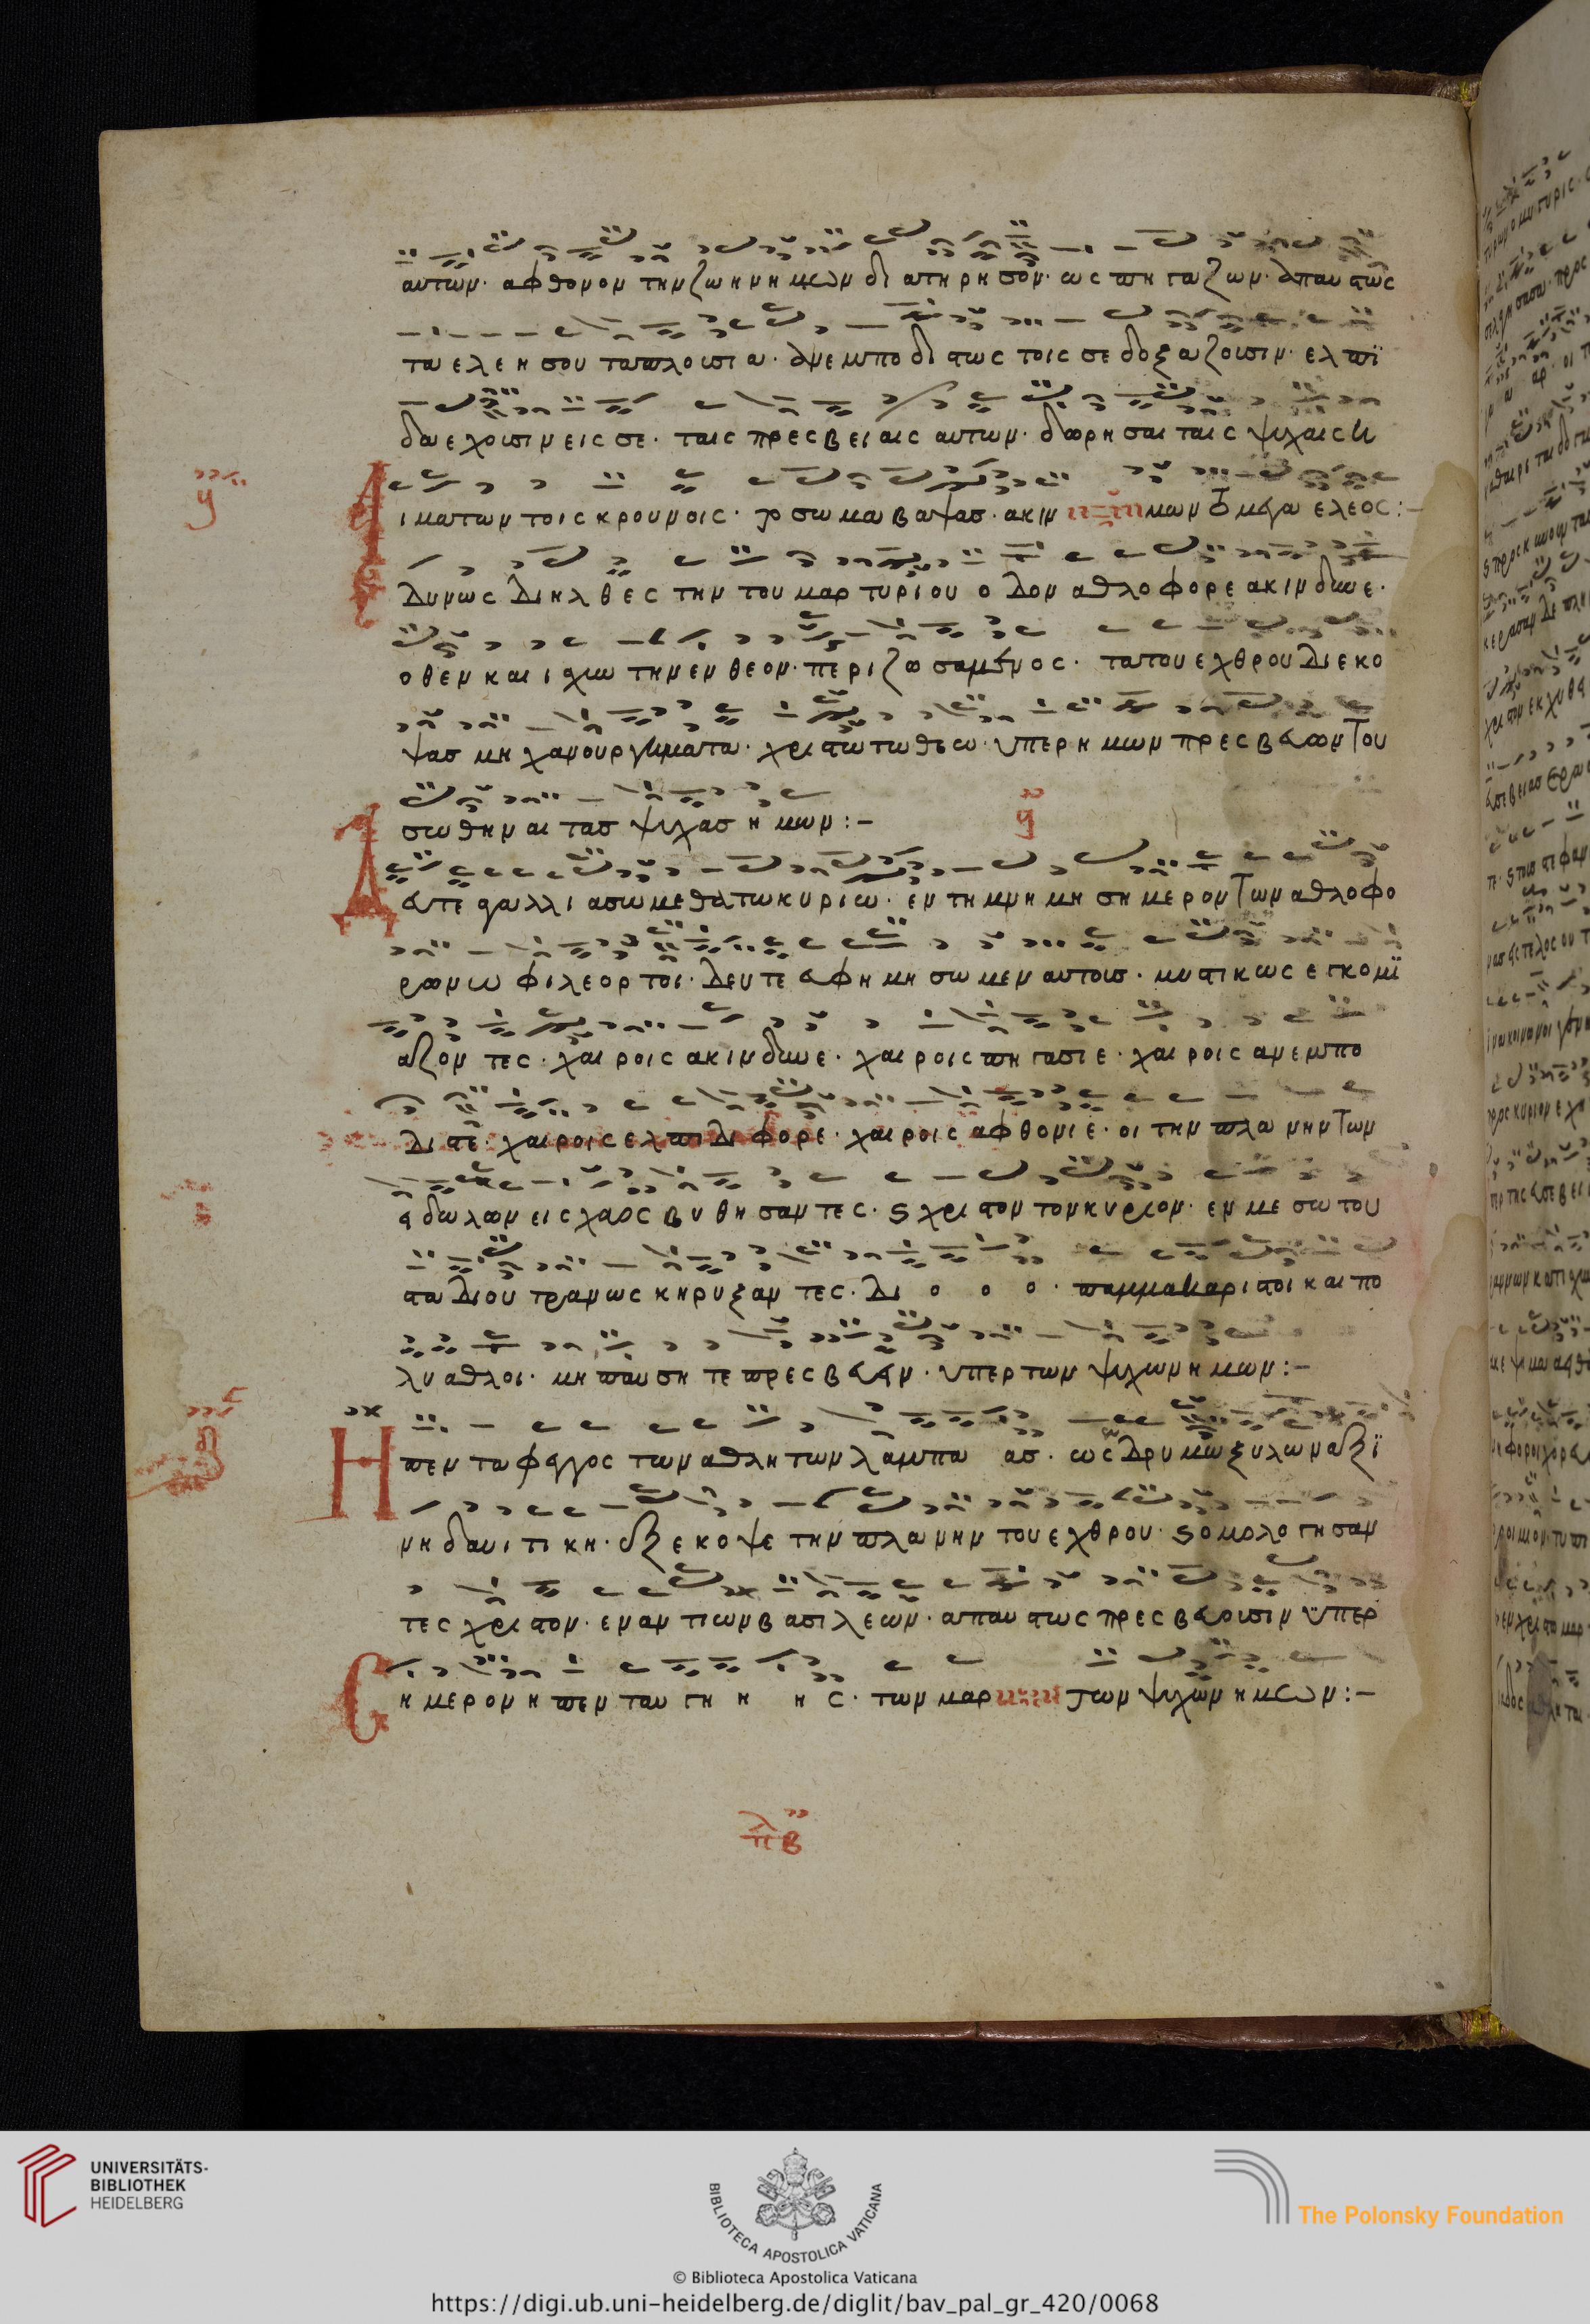 αυτων· αφθονον την ζωην ημων διατηρησον· ως πηγαζων· απαυστως
τα ελεη σου τα πλουσια· ανεμποδιστως τοις σε δοξαζουσιν· ελπι
δα εχουσιν εις σε· ταις πρεσβειαις αυτων· δωρησαι ταις ψυχαις η
Αιματων τοις κρουνοις· το σωμα βαψασ· ακιν μων το μεγα ελεος:–
δυνως διηλθες την του μαρτυριου οδον αθλοφορε ακινδυνε·
οθεν και ισχυν την ενθεον· περιζωσαμενος· τα του εχθρου διεκο
ψασ μηχανουργηματα· χριστω τω θεω· υπερ ημων πρεσβευων του
σωθηναι τασ ψυχασ ημων:–
Δευτε αγαλλιασωμεθα τω κυριω· εν τη μνημη σημερον των αθλοφο
ρων ω φιλεορτοι· δευτε ευφημησωμεν αυτουσ· μυστικως εγκωμι
αζοντες· χαιροις ακινδυνε· χαιροις πηγασιε· χαιροις ανεμπο
διστε· χαιροις ελπιδιφορε· χαιροις αφθονιε· οι την πλανην των
ειδωλων εις χαος βυθησαντες· ϛ χριστον τον κυριον· εν μεσω του
σταδιου τρανως κηρυξαντες· δι ο ο ο· παμμακαριστοι και πο
λυαθλοι· μη παυσητε πρεσβευειν· υπερ των ψυχων ημων:–
Ηπεν το φεγγος των αθλητων λαμπα ασ· ως δρυμω ξυλων αξι
νη δαυιτικη· εξεκοψε την πλανην του εχθρου· ϛ ομολογησαν
τες χριστον· εναντιων βασιλεων· απαυστως πρεσβευουσιν υπερ
Σημερον η πενταυγη η ης· των μαρ των ψυχων ημων:–
UNIVERSITÄTS-
BIBLIOTHEK
HEIDELBERG
BIBLIOTECA APOSTOLICA VATICANA
The Polonsky Foundation
© Biblioteca Apostolica Vaticana
https://digi.ub.uni-heidelberg.de/diglit/bav_pal_gr_420/0068